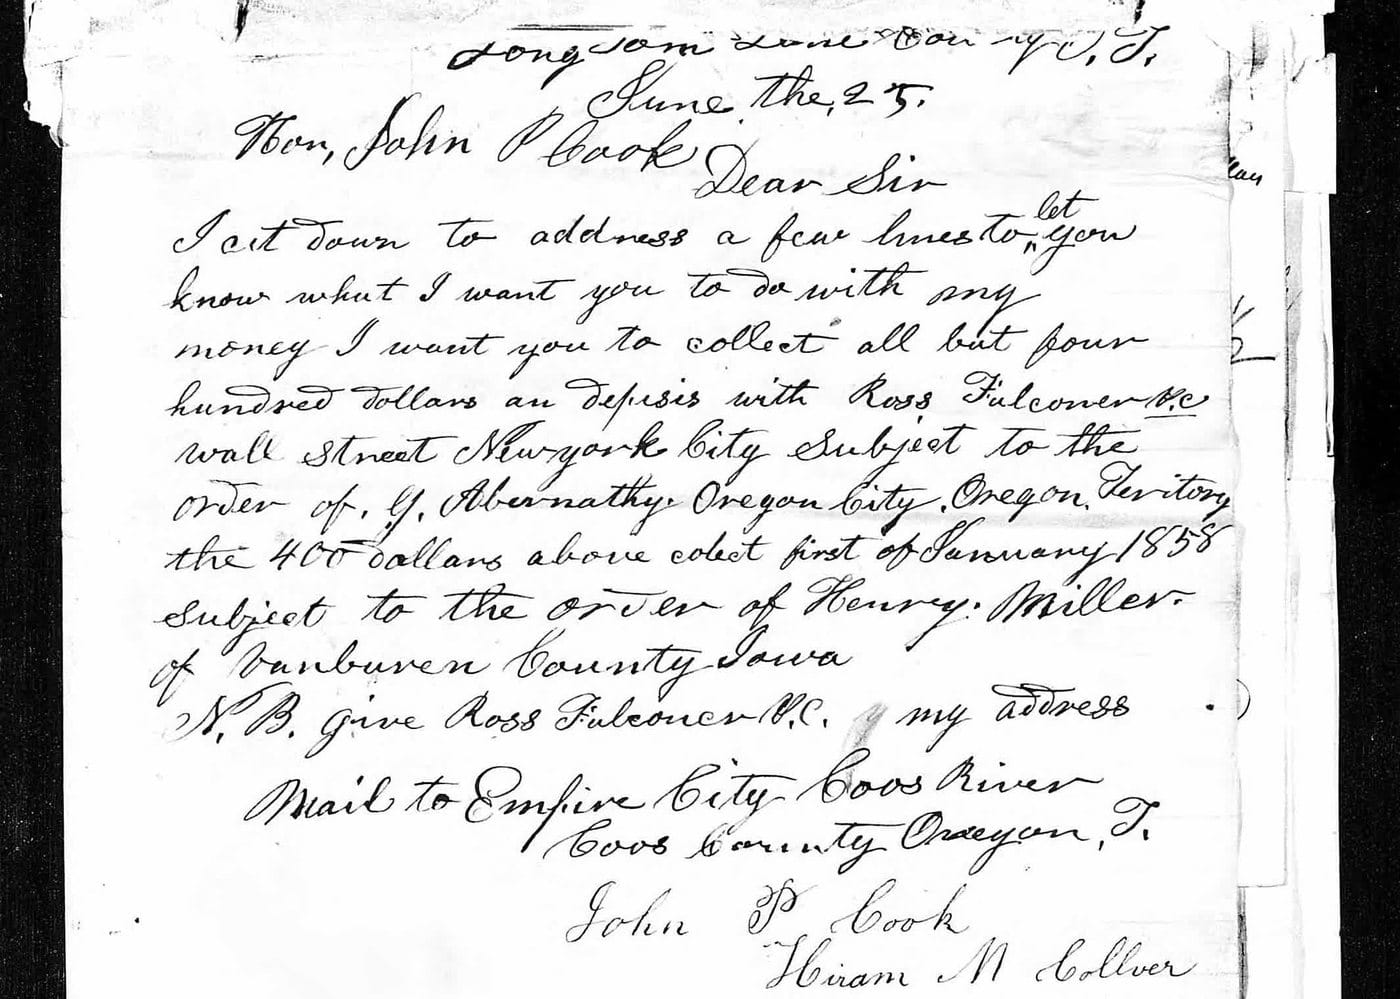 Long tom Lane County O. T.
June the, 25.
Hon, John P Cook
Dear Sir
I cit down to address a few lines to let you
know what I want you to do with my
money I want you to collect all but four
hundred dollars an depisis with Ross Falconer &.C
wall street Newyork City Subject to the
order of. G. Abernathy. Oregon City. Oregon. Teritory
the 400 dollars above colect first of January 1858
subject to the order of Henry. Miller.
of Vanburen County Iowa
N. B. give Ross Falconer &.C. my address
Mail to Empire City Coos River
Coos County Oregon, T.
John P Cook
Hiram M Collver